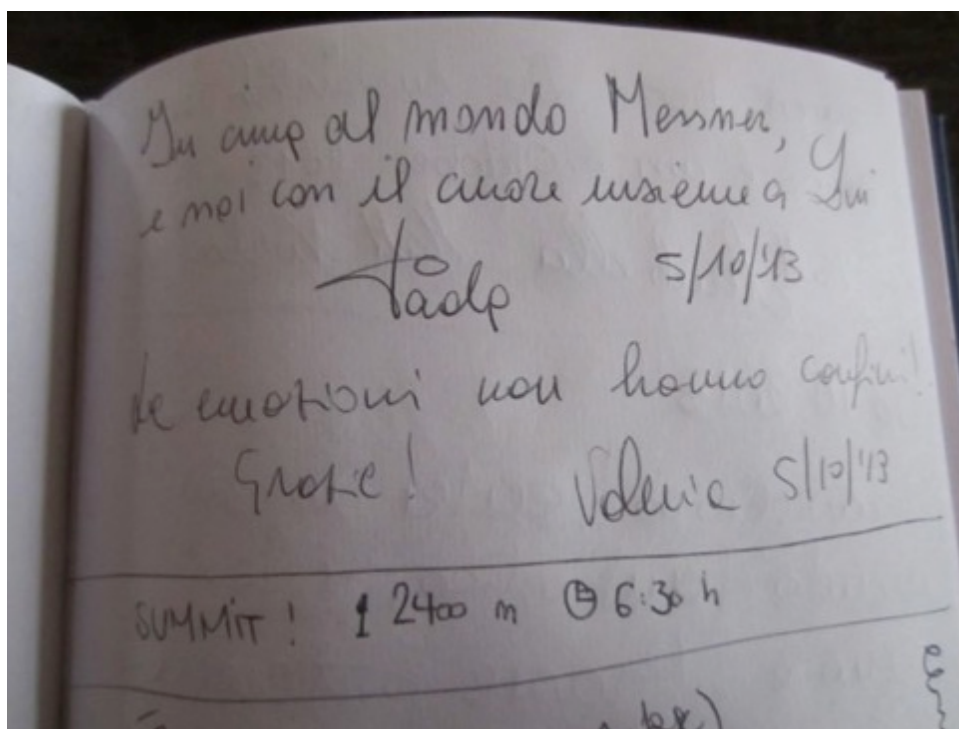 In cima al mondo Messner,
e noi con il cuore insieme a Lui
Paolo 5/10/'13
Le emozioni non hanno confini!
Grazie! Valeria 5/10/'13
SUMMIT! 2400 m 6:30 h